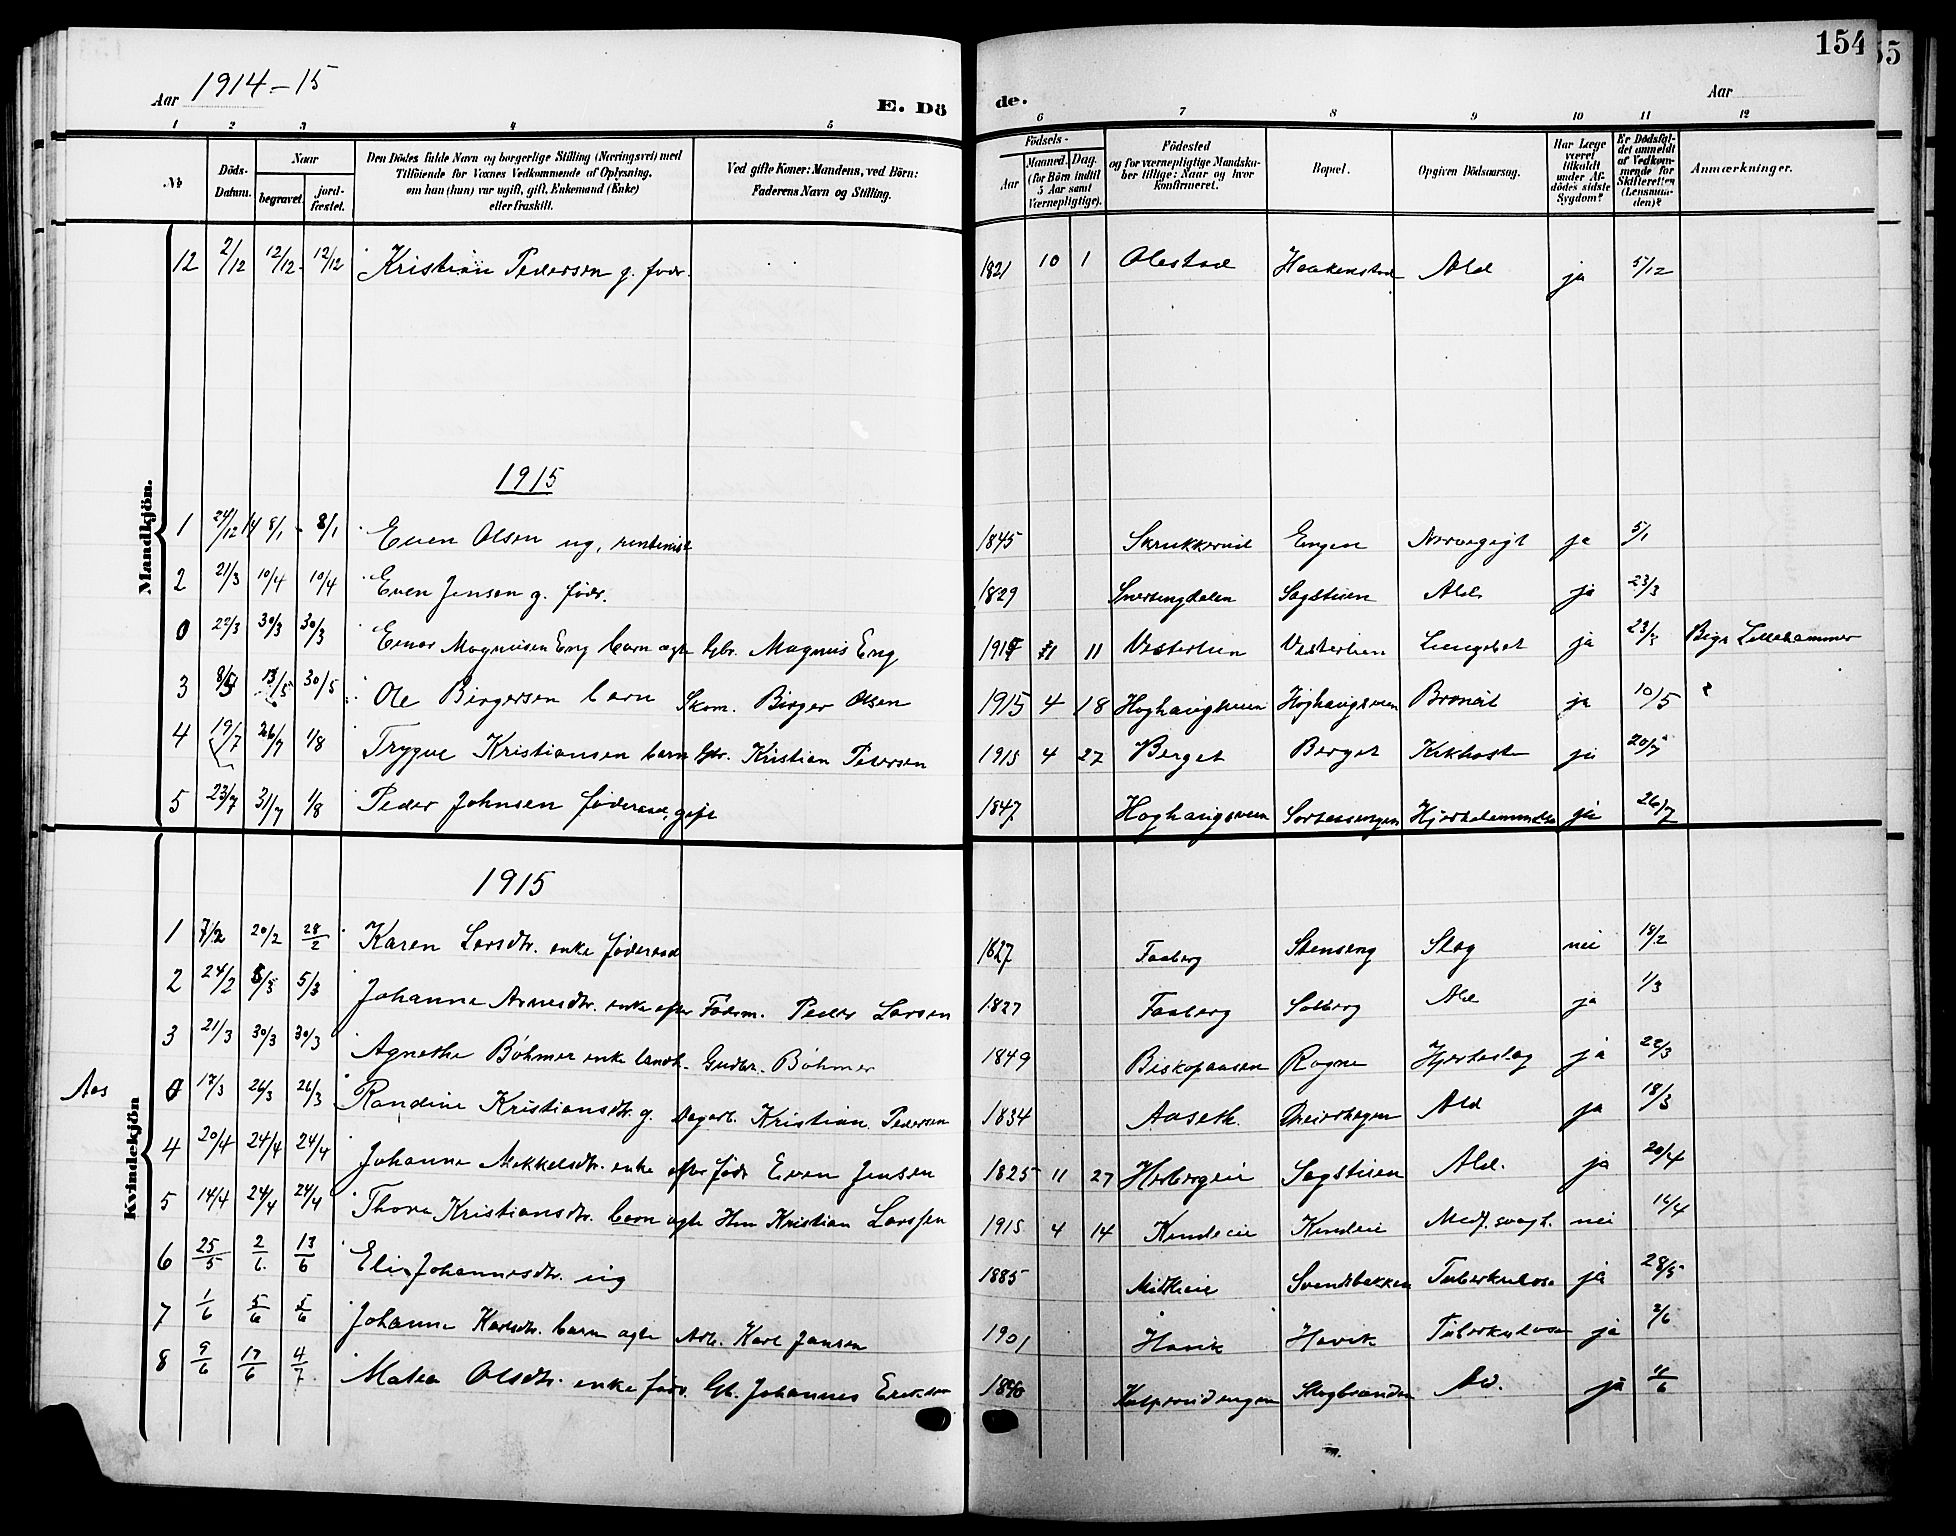 154
55
Aar 1914-15
E. Dö
de.
Aar
1 2 3 4 5 6 7 8 9 10 11 12
No
Döds-Datum.
Naar
begravet.
jord-fæstet.
Den Dödes fulde Navn og borgerlige Stilling (Næringsvei) med
Tilföiende for Voxnes Vedkommende af Oplysning,
om han (hun) var ugift, gift, Enkemand (Enke)
eller fraskilt.
Ved gifte Koner: Mandens, ved Börn:
Faderens Navn og Stilling.
Födsels-
Aar
Maaned. Dag.
(for Börn indtil
5 Aar samt
Værnepligtige).
Födested
og for værnepligtige Mandska-
ber tillige: Naar og hvor
konfirmeret.
Bopæl.
Opgiven Dödsaarsag.
Har Læge
været
tilkaldt
under Af-
dödes sidste
Sygdom?
Er Dödsfal-
det anmeldt
af Vedkom-
mende for
Skifteretten
(Lensman-
den)?
Anmærkninger.
Mandkjön.
12 2/12 12/12 12/12 Kristian Pedersen g. föder. 1821 10 1 Olestad Haakenstad Ald ja 5/12
1915
1 24/12 14 8/1 8/1 Even Olsen ug, rentenist 1845 Skrukkerud Engen Norvegigt ja 5/1
2 21/3 10/4 10/4 Even Jensen g. föder. 1829 Snertingdalen Sagstuen Ald. ja 23/3
0 22/3 30/3 30/3 Einar Magnusen Eng barn ægte Gbr. Magnus Eng 11 Vesterlien Vesterlien Lungebet ja 23/3 Lillehammer
3 30/5 Ole Birgersen barn Skom. Birger Olsen 1915 4 18 Høghaugsveen Høghaugsveen Bronkit ja 10/5
4 19/7 26/7 1/8 Trygve Kristiansen barn Gbr. Kristian Pedersen 1915 4 27 Berget Berget Kikhoste ja 20/7
5 23/7 31/7 1/8 Peder Johnsen föderaad, gift 1847 Høghaugsveen ja 26/7
Kvindekjön
1915
1 7/2 20/2 28/2 Karen Larsdtr. enke föderaad 1827 Faaberg Stenseng Slag nei 18/2
2 24/2 5/3 5/3 Johanne Arnesdtr. enke efter Föderm. Peder Larsen 1827 Faaberg Solberg Ald ja 1/3
3 21/3 30/3 30/3 Agnethe Böhmer enke landh. Gudbr. Böhmer 1849 Biskopaasen Rogne Hjerteslag ja 22/3
Aas 0 17/3 26/3 26/3 Randine Kristiansdtr. g. Dagarb. Kristian Pedersen 1834 Aaseth. Ald ja 18/3
4 20/4 24/4 24/4 Johanne Mikkelsdtr. enke efter föder Even Jensen 1825 11 27 Sagstuen Ald. ja 20/4
5 14/4 24/4 24/4 Thora Kristiansdtr. barn ægte Hm Kristian Larssen 1915 4 14 Kindeie Kindeie Medf. svagh. nei 16/4
6 25/5 2/6 13/6 Eli Johannesdtr. ug 1885 Midtlieie Svendsbakken Tuberkulose ja 28/5
7 1/6 5/6 5/6 Johanne Karlsdtr. barn ægte Arb. Karl Jansen 1901 Hovik Hovik Tuberkulose ja 2/6
8 9/6 17/6 4/7 Matea Olsdtr. enke föder Gb. Johannes Eriksen 1840 Kalpvrudengen Slogbranden Ald. ja 11/6